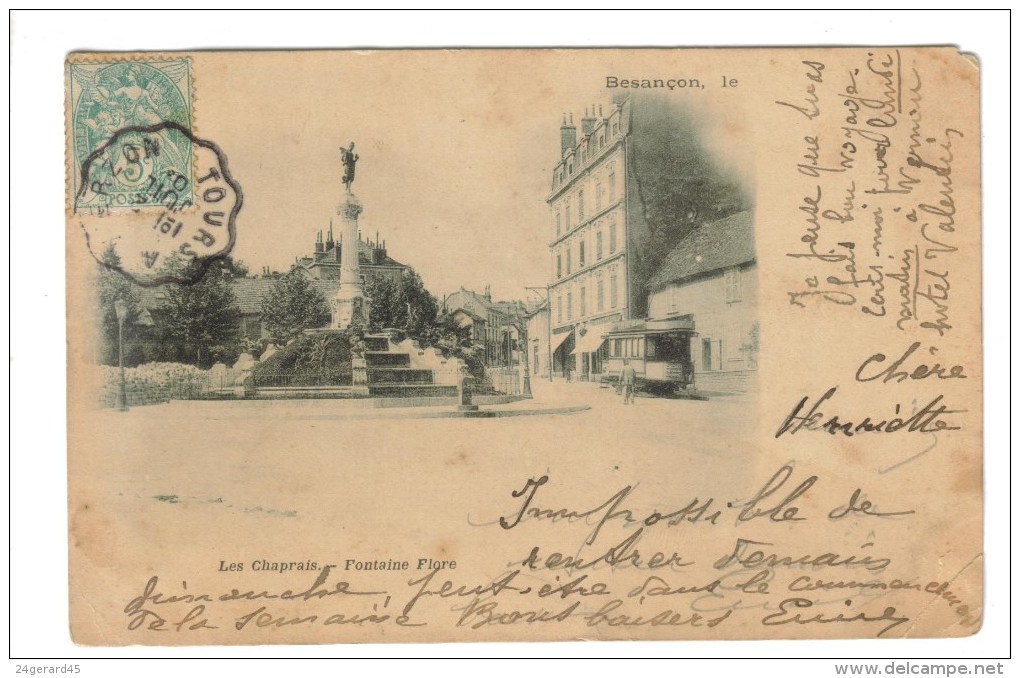 Besançon, le
TOURS
JUIL
5
POSTES
A
Chère
Henriette
Impossible de
rentrer demain
Dimanche, peut-être dans le commencement
de la semaine Bons baisers
Je pense que tu as
fais bon voyage.
Ecris-moi pour lundi
matin à Vernon
hôtel Valentin
Les Chaprais. – Fontaine Flore
24gerard45
www.delcampe.net